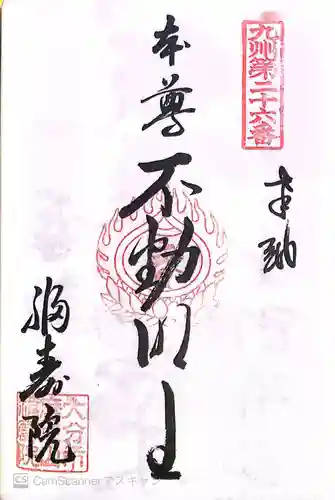 九州第二十六番
奉納
本尊
不動明王
福寿院
大分市
CS CamScannerでスキャン